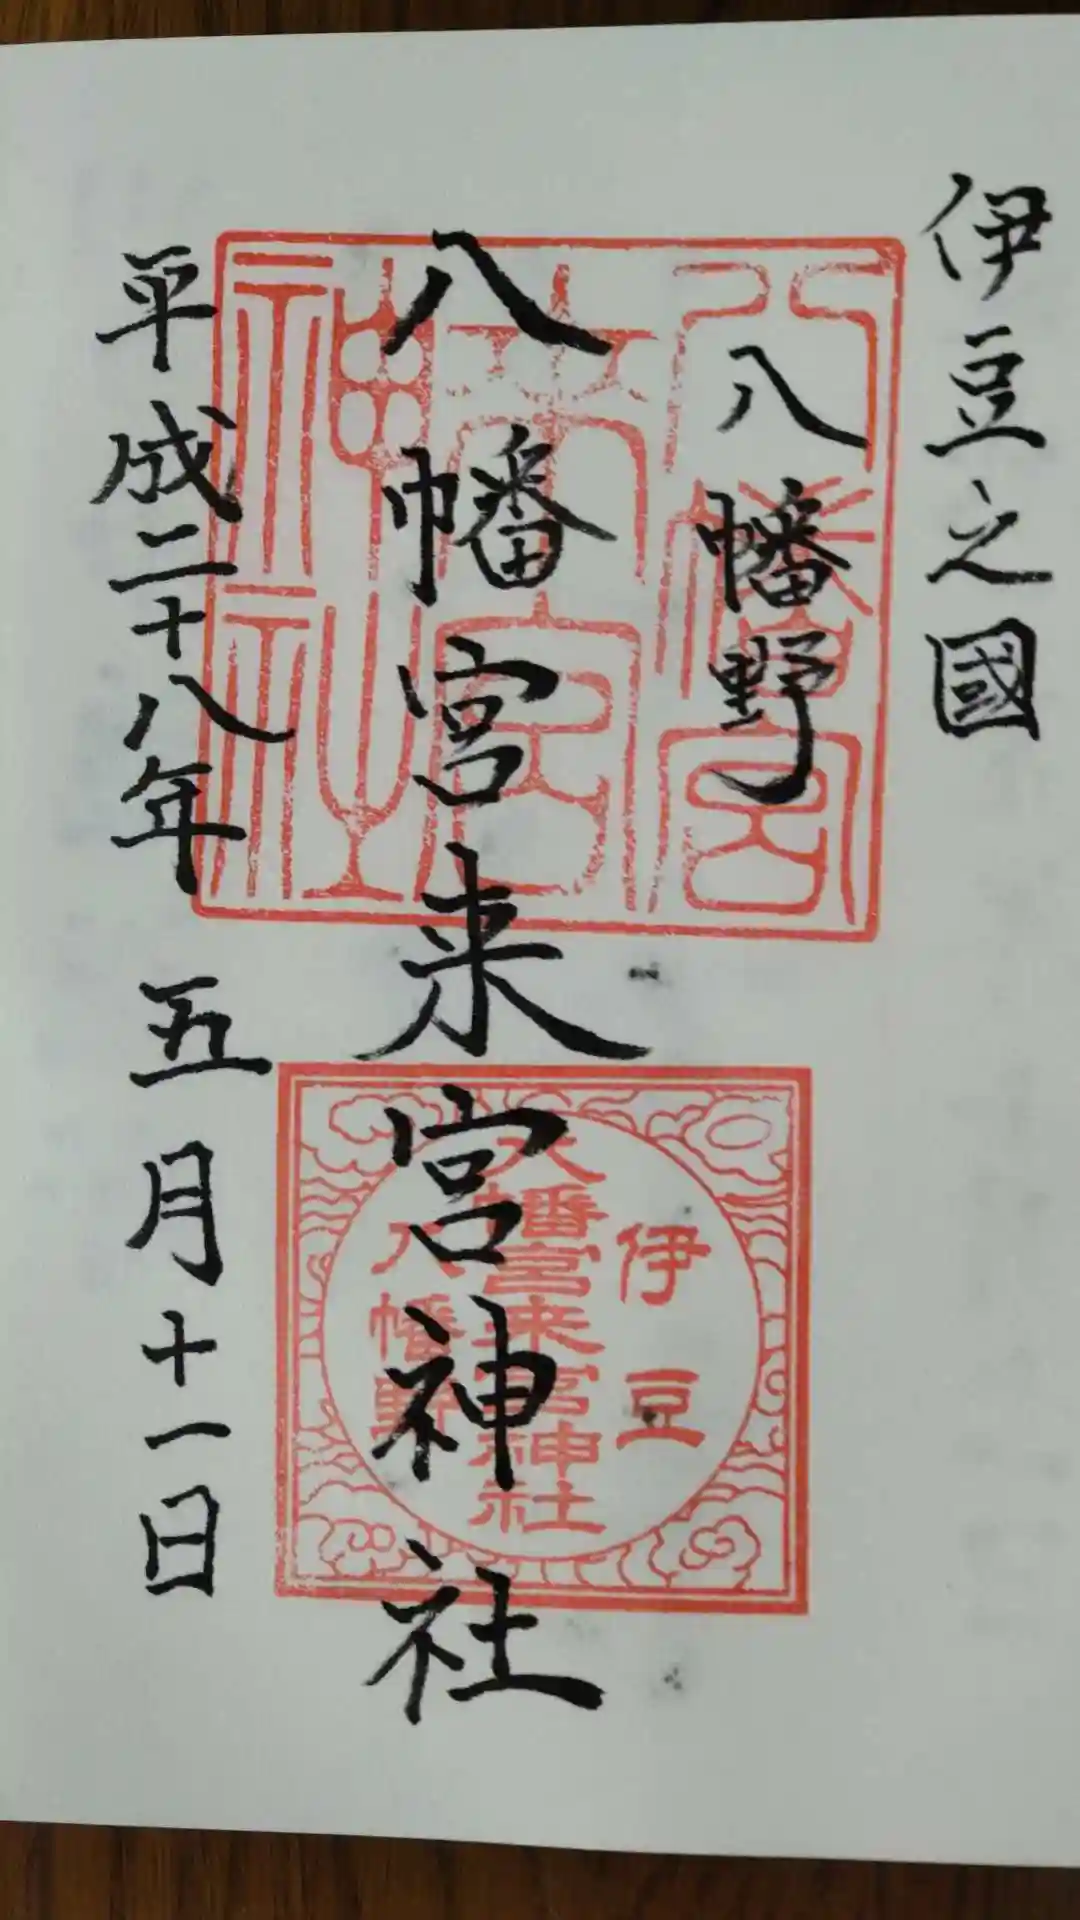 伊豆之國
八幡野
八幡宮来宮神社
平成二十八年五月十一日
八幡宮
来宮
神社
伊豆
八幡宮来宮神社
八幡野